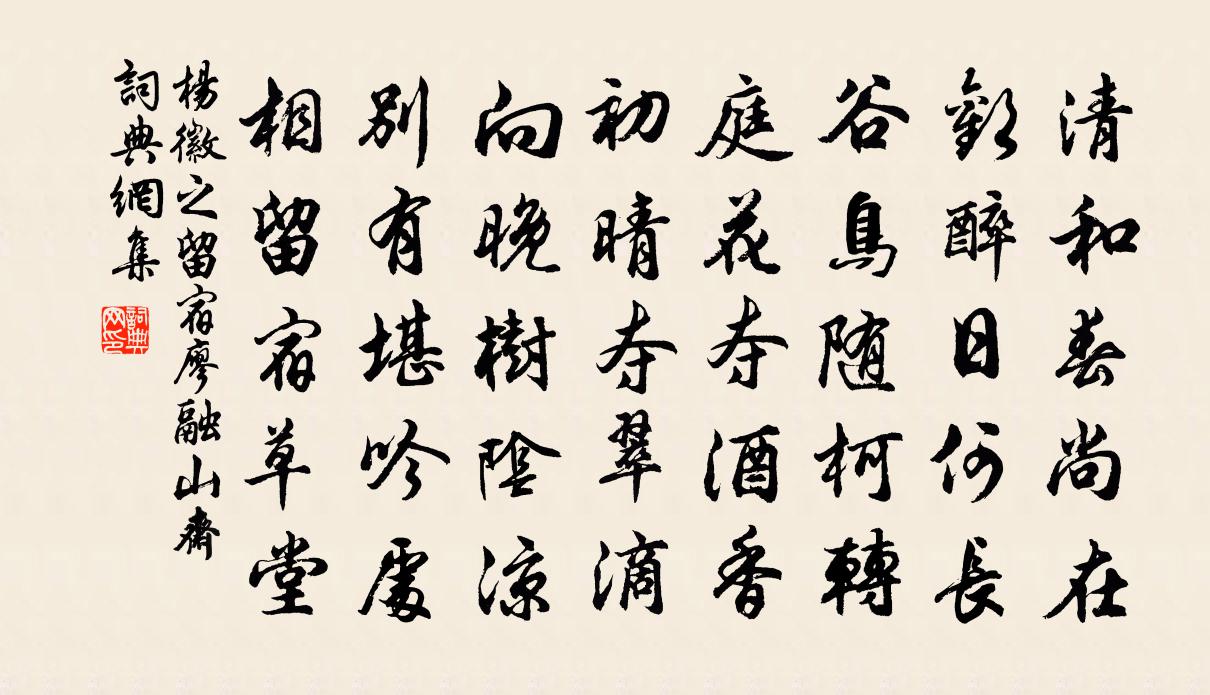 清和春尚在
歡醉日何長
谷鳥随柯轉
庭花夺酒香
初晴夺翠滴
向晚樹陰涼
別有堪吟處
相留宿草堂
楊徽之留宿廖融山齋
詞典網集
詞典网印